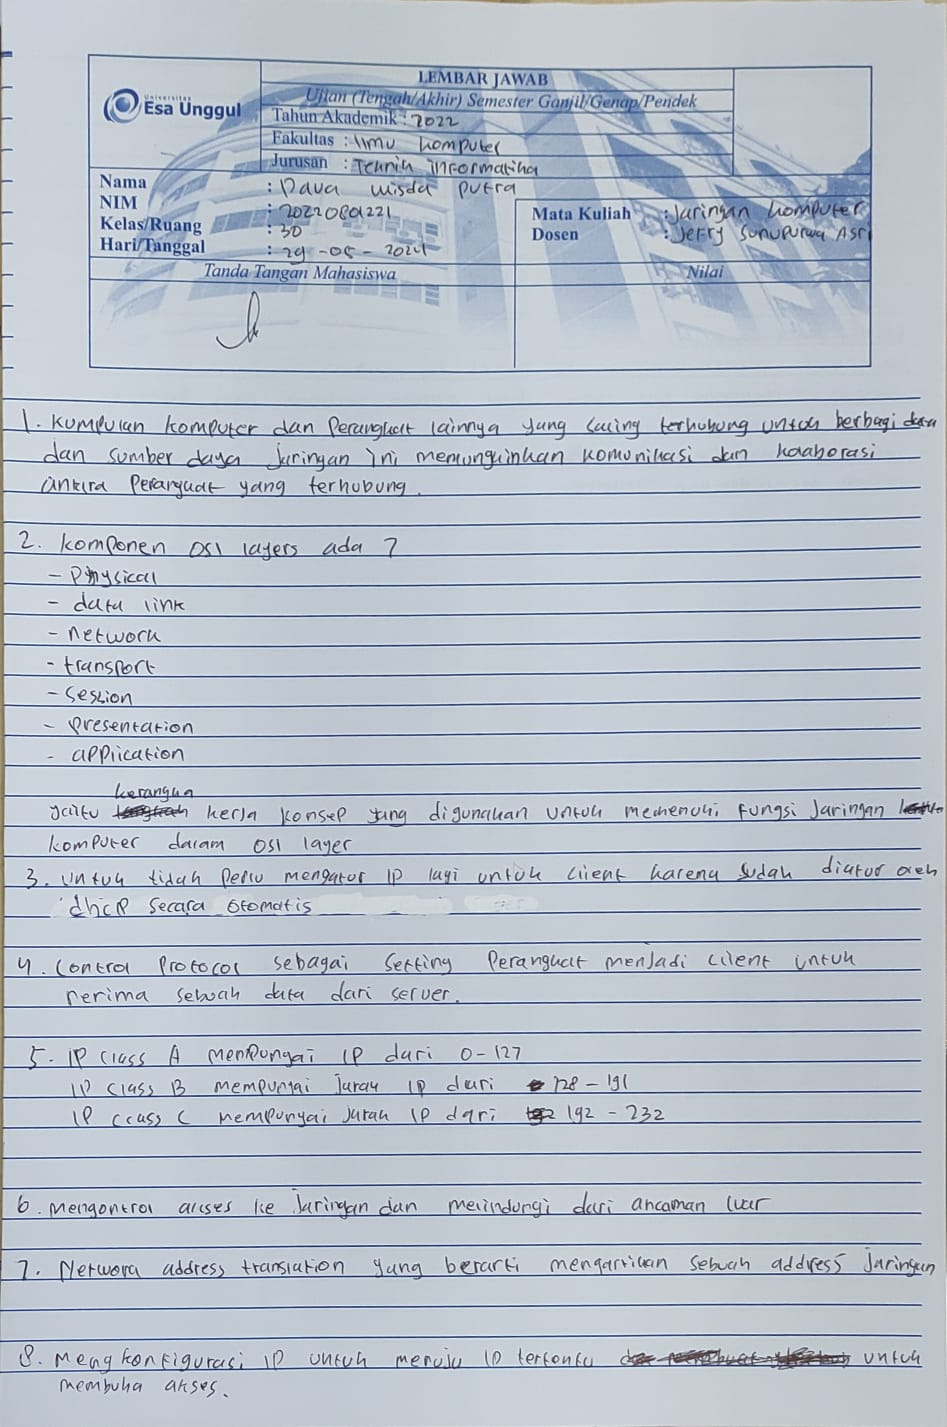 LEMBAR JAWAB
Universitas
Esa Unggul
Ujian (Tengah/Akhir) Semester Ganjil/Genap/Pendek
Tahun Akademik : 2022
Fakultas : Ilmu komputer
Jurusan : Teknik informatika
Nama : Dava wisda putra
NIM : 20220801221
Kelas/Ruang : 30
Hari/Tanggal : 29-05-2024
Mata Kuliah : Jaringan komputer
Dosen : Jefry Sunupurwa Asri
Tanda Tangan Mahasiswa
Nilai
1. Kumpulan komputer dan Perangkat lainnya yang saling terhubung untuk berbagi data
dan sumber daya jaringan ini memungkinkan komunikasi dan kolaborasi
antara Perangkat yang terhubung.
2. Komponen OSI layers ada 7
- Physical
- data link
- network
- transport
- session
- presentation
- application
kerangka
yaitu kerja konsep yang digunakan untuk memenuhi fungsi jaringan
komputer dalam OSI layer
3. untuk tidak perlu mengatur IP lagi untuk client karena sudah diatur oleh
dhcp secara otomatis
4. Control Protocol sebagai setting Perangkat menjadi client untuk
nerima sebuah data dari server.
5. IP Class A mempungai IP dari 0-127
IP Class B mempungai jarak IP dari 128 - 191
IP Class C mempunyai jarak IP dari 192 - 232
6. Mengontrol akses ke jaringan dan melindungi dari ancaman luar
7. Network address translation yang berarti mengartikan sebuah address jaringan
8. Mengkonfigurasi IP untuk menuju IP tertentu untuk
membuka akses.